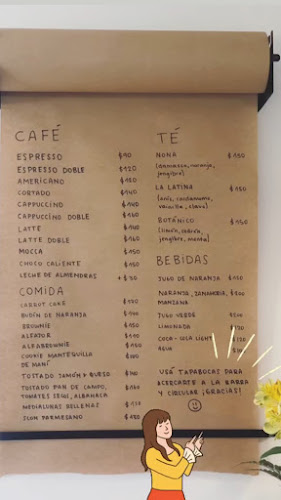 CAFÉ
ESPRESSO $90
ESPRESSO DOBLE $120
AMERICANO $120
CORTADO $140
CAPPUCCINO $140
CAPPUCCINO DOBLE $160
LATTE $140
LATTE DOBLE $160
MOCCA $150
CHOCO CALIENTE $150
LECHE DE ALMENDRAS +$30
COMIDA
CARROT CAKE
BUDÍN DE NARANJA
BROWNIE $150
ALFAJOR
ALFABROWNIE
COOKIE MANTEQUILLA
DE MANÍ
TOSTADO JAMÓN + QUESO
TOSTADO PAN DE CAMPO,
TOMATES SECOS, ALBAHACA
MEDIALUNAS RELLENAS
SCON PARMESANO
TÉ
NONA $150
(damasco, naranja,
jengibre)
LA LATINA $150
(anís, cardamomo,
vainilla, clavo)
BOTÁNICO $150
(limón, cedrón,
jengibre, menta)
BEBIDAS
JUGO DE NARANJA
NARANJA, ZANAHORIA, $200
MANZANA
JUGO VERDE $200
LIMONADA
COCA-COLA LIGHT
AGUA
USÁ TAPABOCAS PARA
ACERCARTE A LA BARRA
Y CIRCULAR ¡GRACIAS!